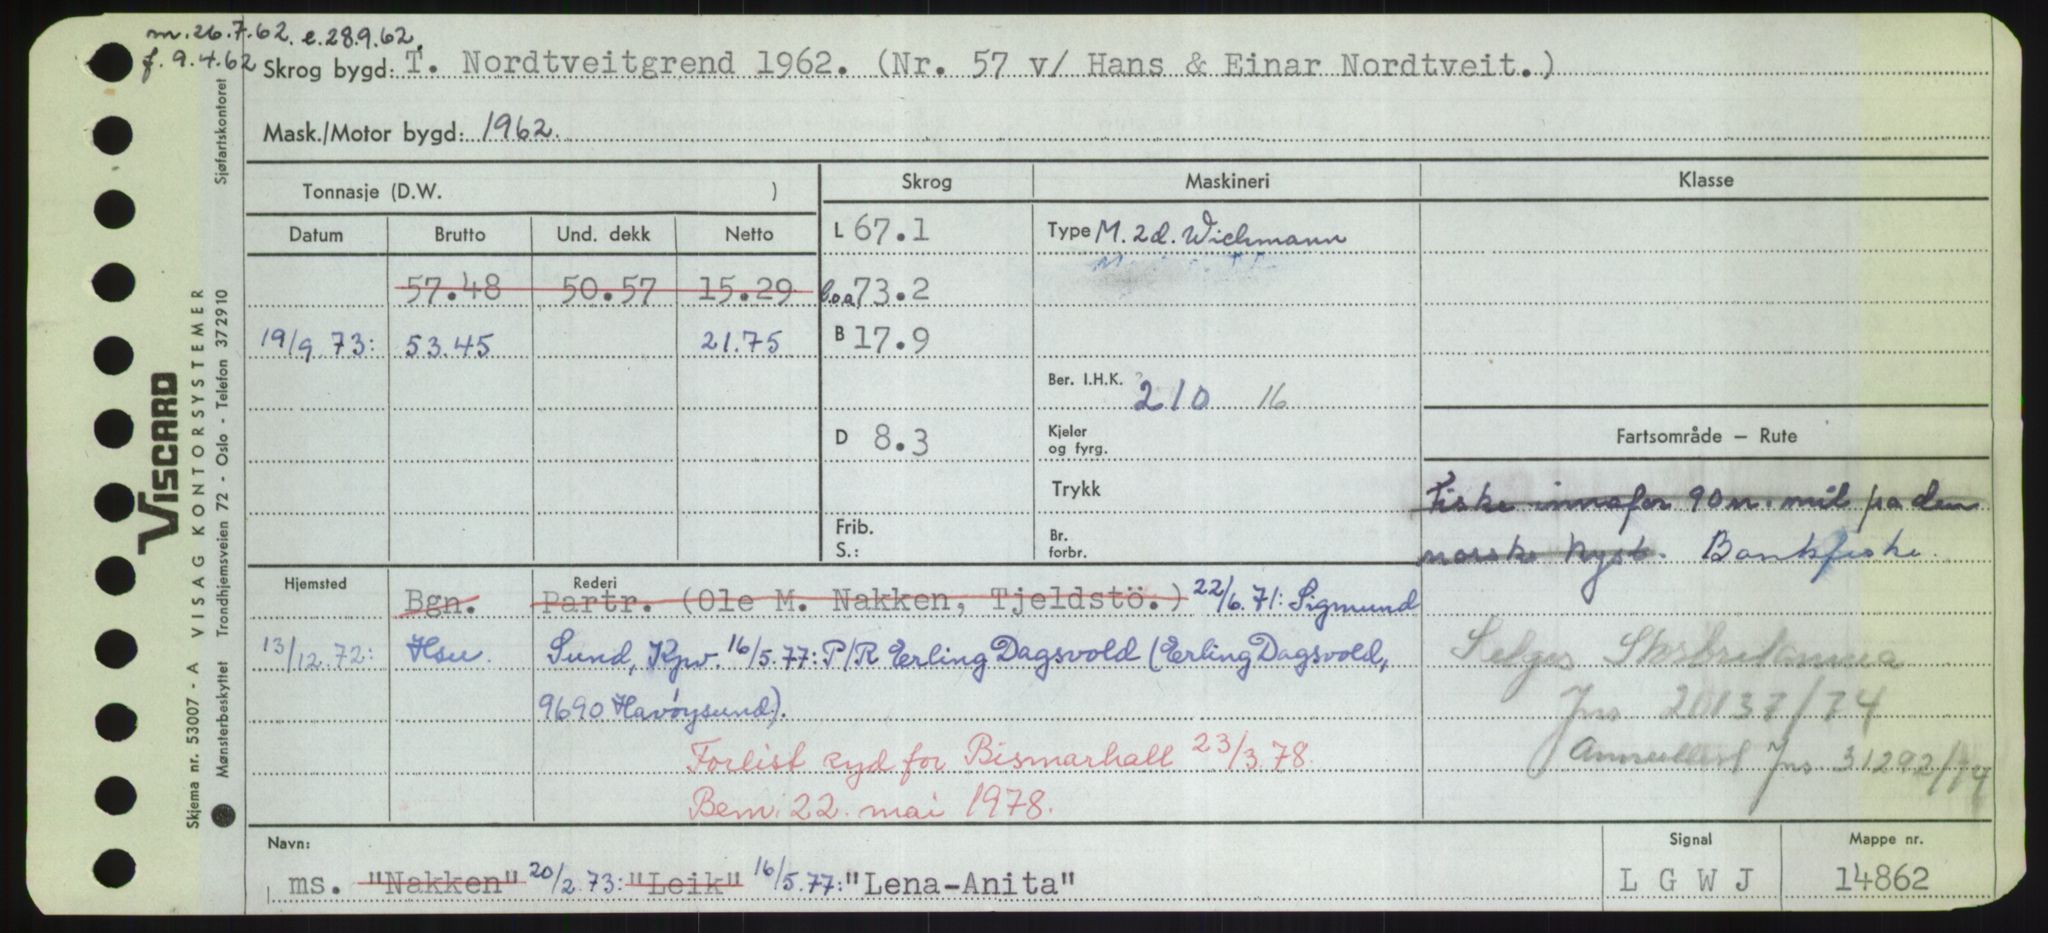 m. 26.7.62. e. 28.9.62.
f. 9.4.62
Skrog bygd: T. Nordtveitgrend 1962. (Nr. 57 v/ Hans & Einar Nordtveit.)
Mask./Motor bygd: 1962.
Tonnasje (D.W. )
Skrog Maskineri Klasse
Datum Brutto Und. dekk Netto
L 67.1 Type M. 2d. Wichmann
57.48 50.57 15.29 loa 73.2
19/9.73: 53.45 21.75 B 17.9
Ber. I.H.K. 210 16
D 8.3 Kjeler og fyrg.
Fartsområde – Rute
Trykk
Fiske innafor 90 n. mil på den
Frib. S.: Br. forbr.
norske kyst. Bankfiske.
Hjemsted Rederi
Bgn. Partr. (Ole M. Nakken, Tjeldstö.) 22/6.71: Sigmund
13/12.72: Hsu. Sund, Kpv. 16/5.77: P/R Erling Dagsvold (Erling Dagsvold,
9690 Havøysund).
Selges Storbritannia
Jns 20137/74
Annullert Jns 31292/74
Forlist syd for Bismarhall 23/3.78.
Bem. 22. mai 1978.
Navn: Signal Mappe nr.
ms. "Nakken" 20/2.73: "Leik" 16/5.77: "Lena-Anita" L G W J 14862
Sjøfartskontoret
VISCARD
VISAG KONTORSYSTEMER
Trondhjemsveien 72 - Oslo - Telefon 372910
Skjema nr. 53007 - A
Mønsterbeskyttet